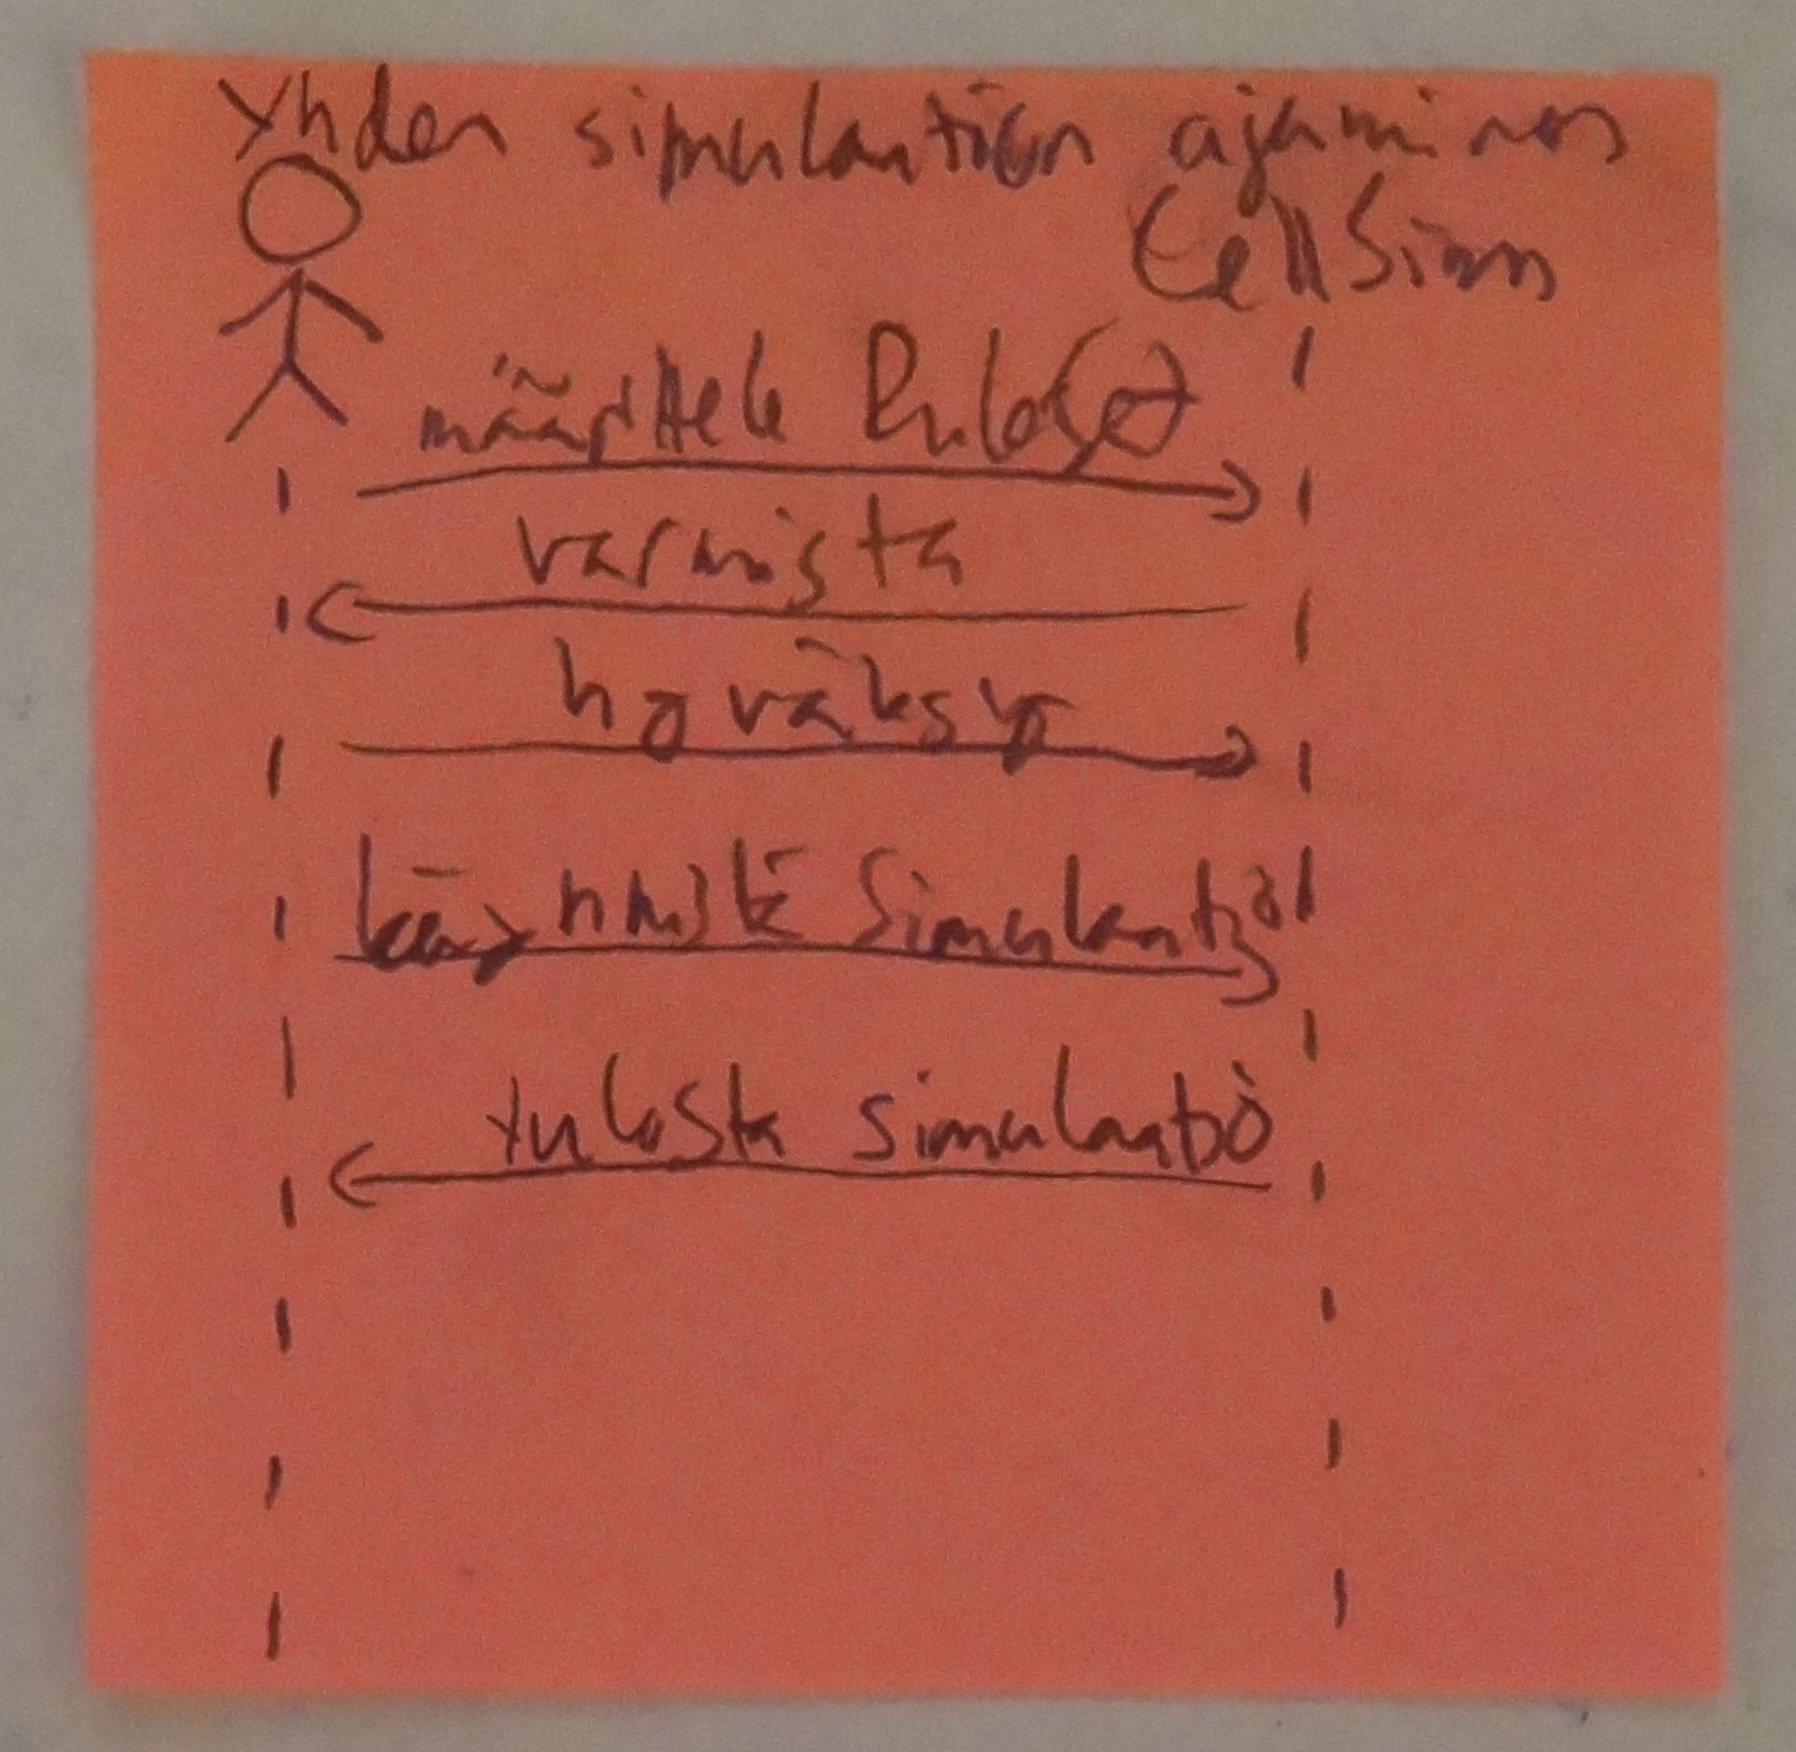 Yhden simulaation ajaminen
CellSim
määrittele RuleSet
varmista
hyväksy
käynnistä simulaatio
tulosta simulaatio